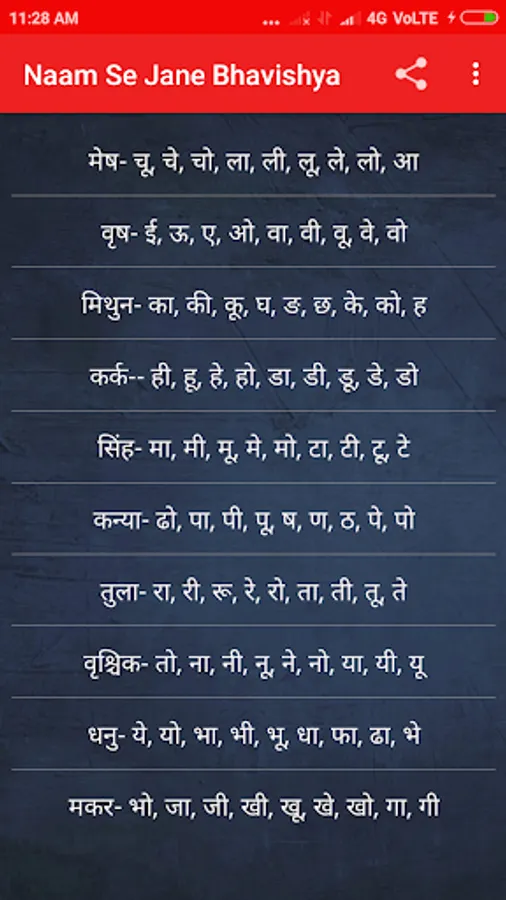 11:28 AM ... 4G VoLTE
Naam Se Jane Bhavishya
मेष- चू, चे, चो, ला, ली, लू, ले, लो, आ
वृष- ई, ऊ, ए, ओ, वा, वी, वू, वे, वो
मिथुन- का, की, कू, घ, ङ, छ, के, को, ह
कर्क-- ही, हू, हे, हो, डा, डी, डू, डे, डो
सिंह- मा, मी, मू, मे, मो, टा, टी, टू, टे
कन्या- ढो, पा, पी, पू, ष, ण, ठ, पे, पो
तुला- रा, री, रू, रे, रो, ता, ती, तू, ते
वृश्चिक- तो, ना, नी, नू, ने, नो, या, यी, यू
धनु- ये, यो, भा, भी, भू, धा, फा, ढा, भे
मकर- भो, जा, जी, खी, खू, खे, खो, गा, गी